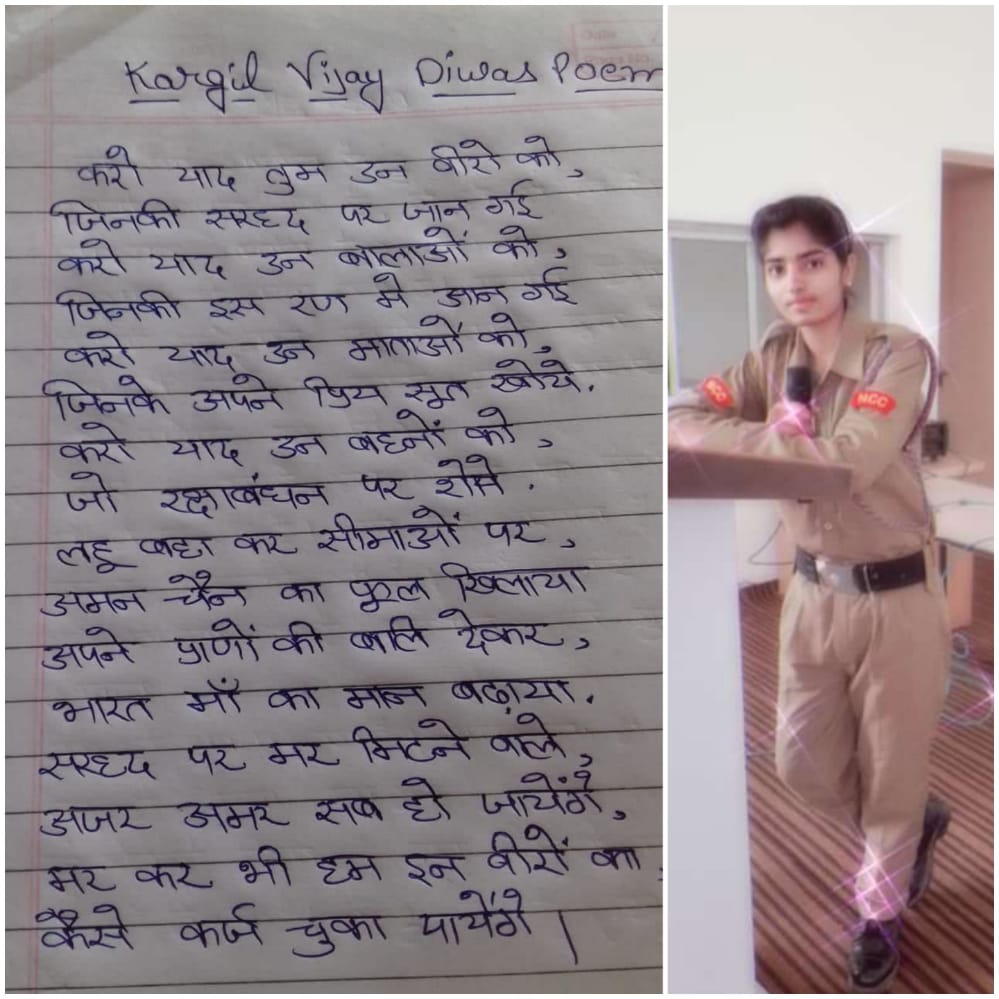 Kargil Vijay Diwas Poem
करो याद तुम उन वीरो को,
जिनकी सरहद पर जान गई
करो याद उन बालाओं को,
जिनकी इस रण मे आन गई
करो याद उन माताओं को,
जिनके अपने प्रिय सुत खोये.
करो याद उन बहनों को,
जो रक्षाबंधन पर रोये.
लहू बहा कर सीमाओं पर,
अमन चैन का फूल खिलाया
अपने प्राणों की बलि देकर,
भारत माँ का मान बढ़ाया.
सरहद पर मर मिटने वाले,
अजर अमर सब हो जायेंगे,
मर कर भी हम इन वीरों का,
कैसे कर्ज चुका पायेंगे |
NCC
NCC